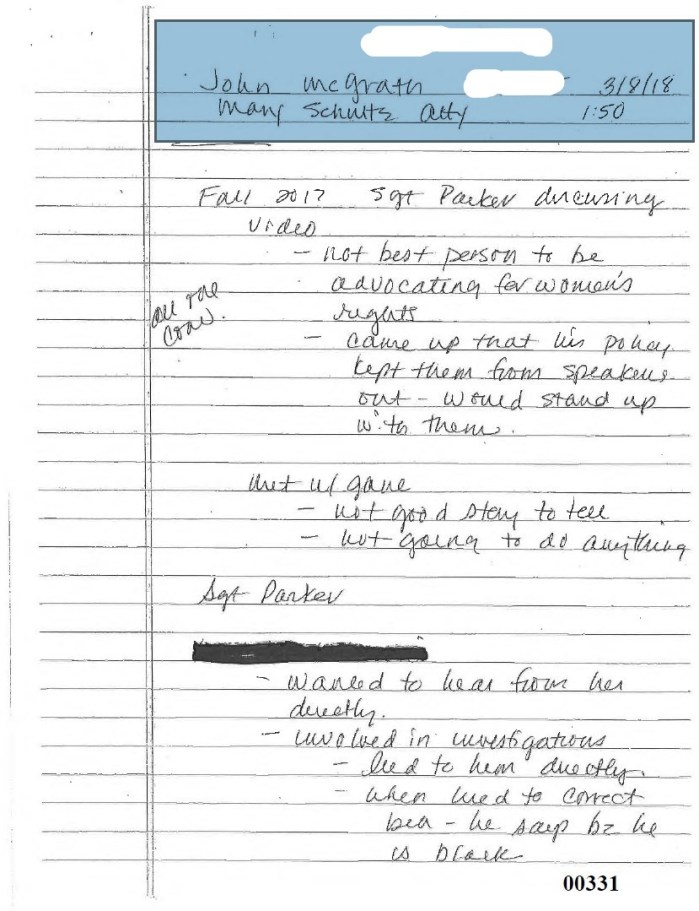 John McGrath 3/8/18
Mary Schultz Atty 1:50
Fall 2017 Sgt Parker discussing
video
- not best person to be
advocating for women's
rights
- came up that his policy
kept them from speaking
out - would stand up
with them.
all the
Met w/
- not good story to tell
- not going to do anything
Sgt Parker
- wanted to hear from her
directly.
- involved in investigations
- lied to him directly.
- when tried to correct
- he says bz he
is black
00331